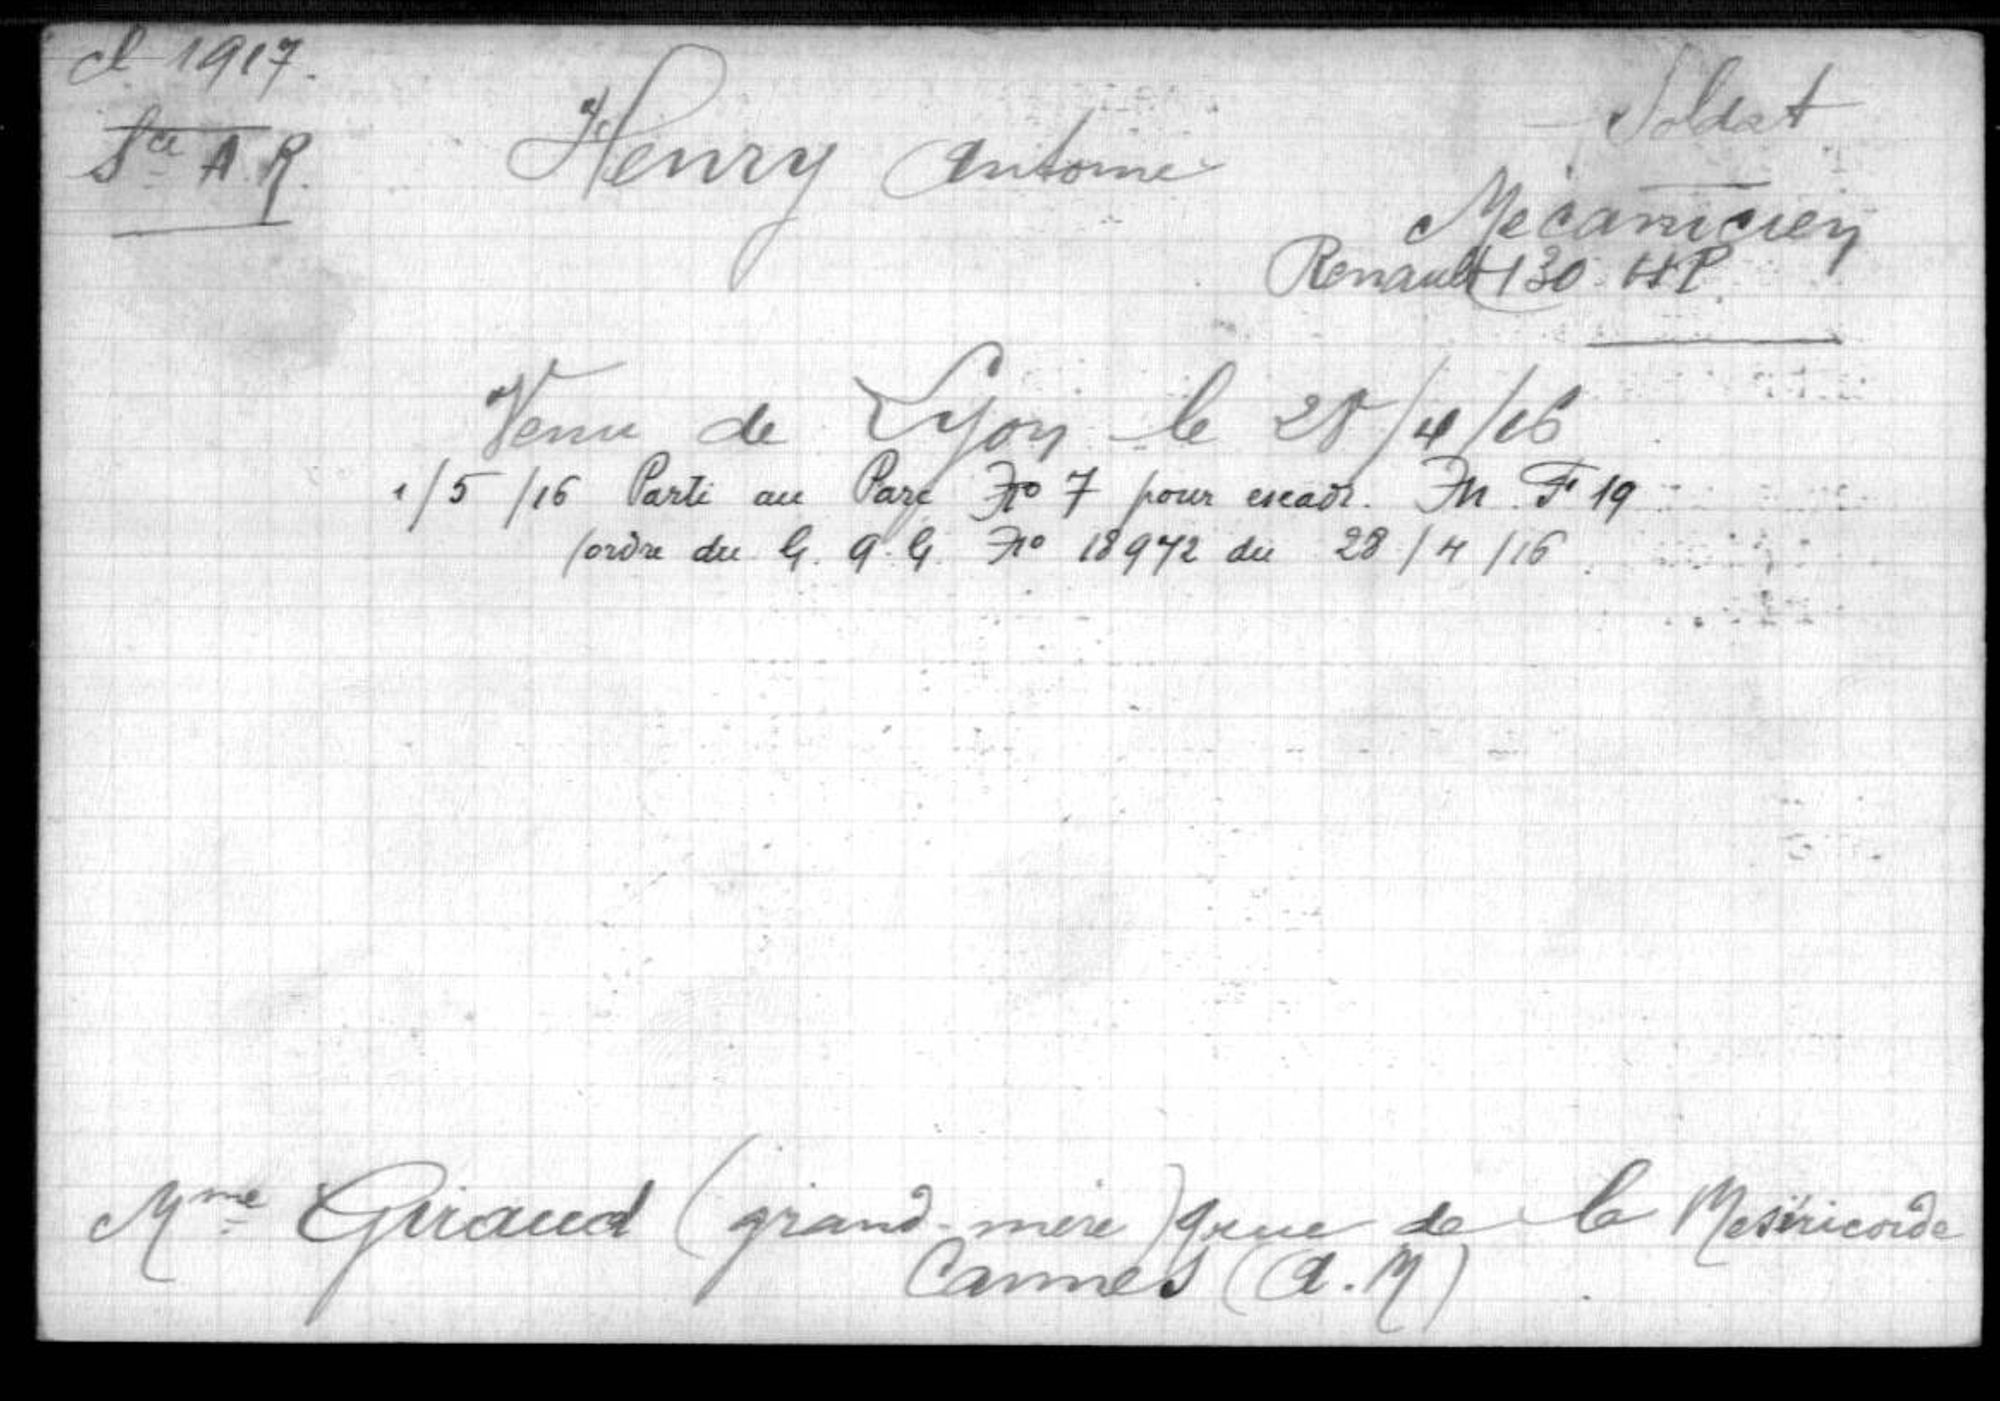 cl 1917.
Sce A. R.
Henry Antoine
Soldat
Mécanicien
Renault 130 HP.
Venu de Lyon le 28/4/16
1/5/16 Parti au Parc No 7 pour escadr. M. F 19
(ordre du G. Q. G. No 18972 du 28/4/16
Mme Giraud (grand-mère) 9 rue de la Meséricorde
Cannes (A. M)